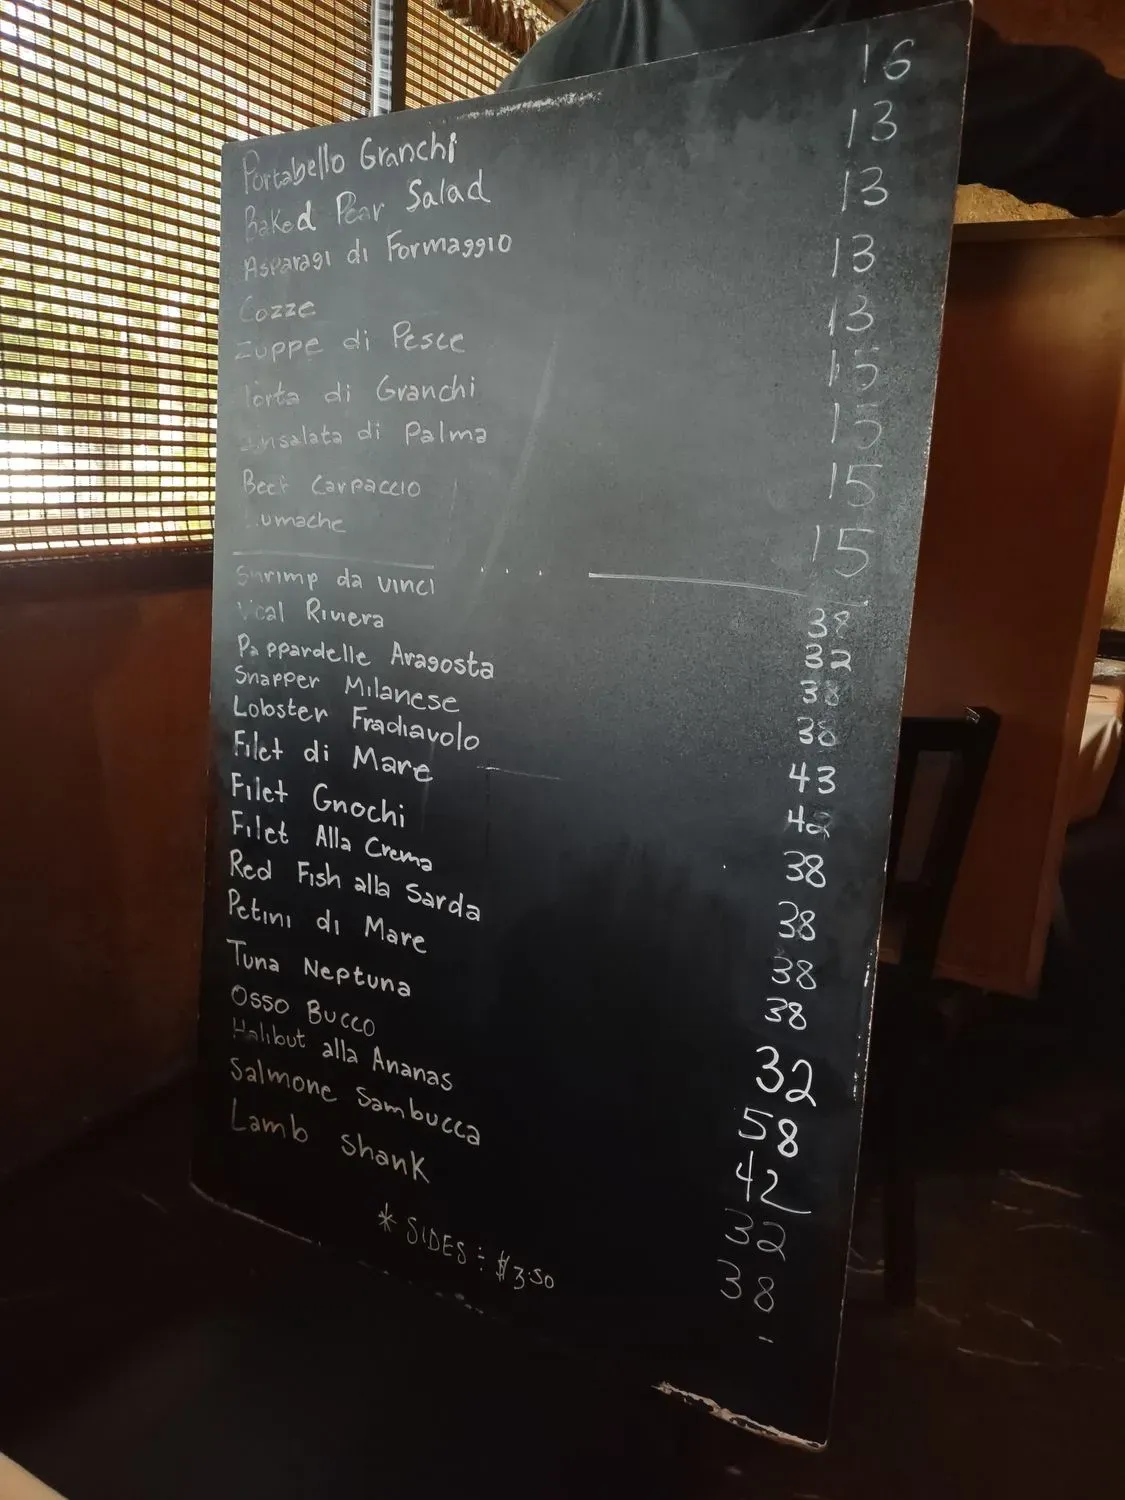 Portabello Granchi 16
Baked Pear Salad 13
Asparagi di Formaggio 13
Cozze 13
Zuppe di Pesce 13
Torta di Granchi 15
Insalata di Palma 15
Beef Carpaccio 15
Lumache 15
Shrimp da vinci 38
Veal Riviera 32
Pappardelle Aragosta 38
Snapper Milanese 38
Lobster Fradiavolo 43
Filet di Mare 42
Filet Gnochi 38
Filet Alla Crema 38
Red Fish alla Sarda 38
Petini di Mare 38
Tuna Neptuna 32
Osso Bucco 58
Halibut alla Ananas 42
Salmone Sambucca 32
Lamb Shank 38
* SIDES : $3.50